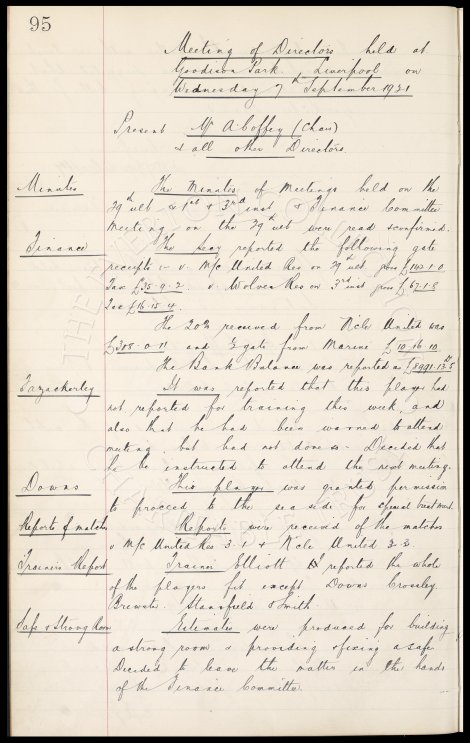 95
Meeting of Directors held at
Goodison Park. Liverpool on
Wednesday 7th September 1921
Present Mr A. Coffey (Chair)
& all other Directors
Minutes
The Minutes of Meetings held on the
29th ult & 1st & 3rd inst & Finance Committee
Meeting on the 29th ult were read & confirmed.
Finance
The Secy reported the following gate
receipts - v. M/c United Res on 29th ult gross £142.1.0
Tax £35.9.2. v. Wolves Res on 3rd inst gross £67.1.8
Tax £16.15.4.
The 20% received from N'cle United was
£308.0.11 and 1/2 gate from Marine £10.16.10
The Bank Balance was reported as £8991.13.5
Fazackerley
It was reported that this player had
not reported for training this week, and
also that he had been warned to attend
meeting, but had not done so - Decided that
he be instructed to attend the next meeting.
Downs
This player was granted permission
to proceed to the sea side for special treatment.
Reports of matches
Reports were received of the matches
v M/c United Res 3.1 & N'cle United 3.3.
Trainer's Report
Trainer Elliott reported the whole
of the players fit except Downs Crossley.
Brewster. Stansfield & Smith.
Safe & Strong Room
Estimates were produced for building
a strong room & providing & fixing a safe.
Decided to leave the matter in the hands
of the Finance Committee.